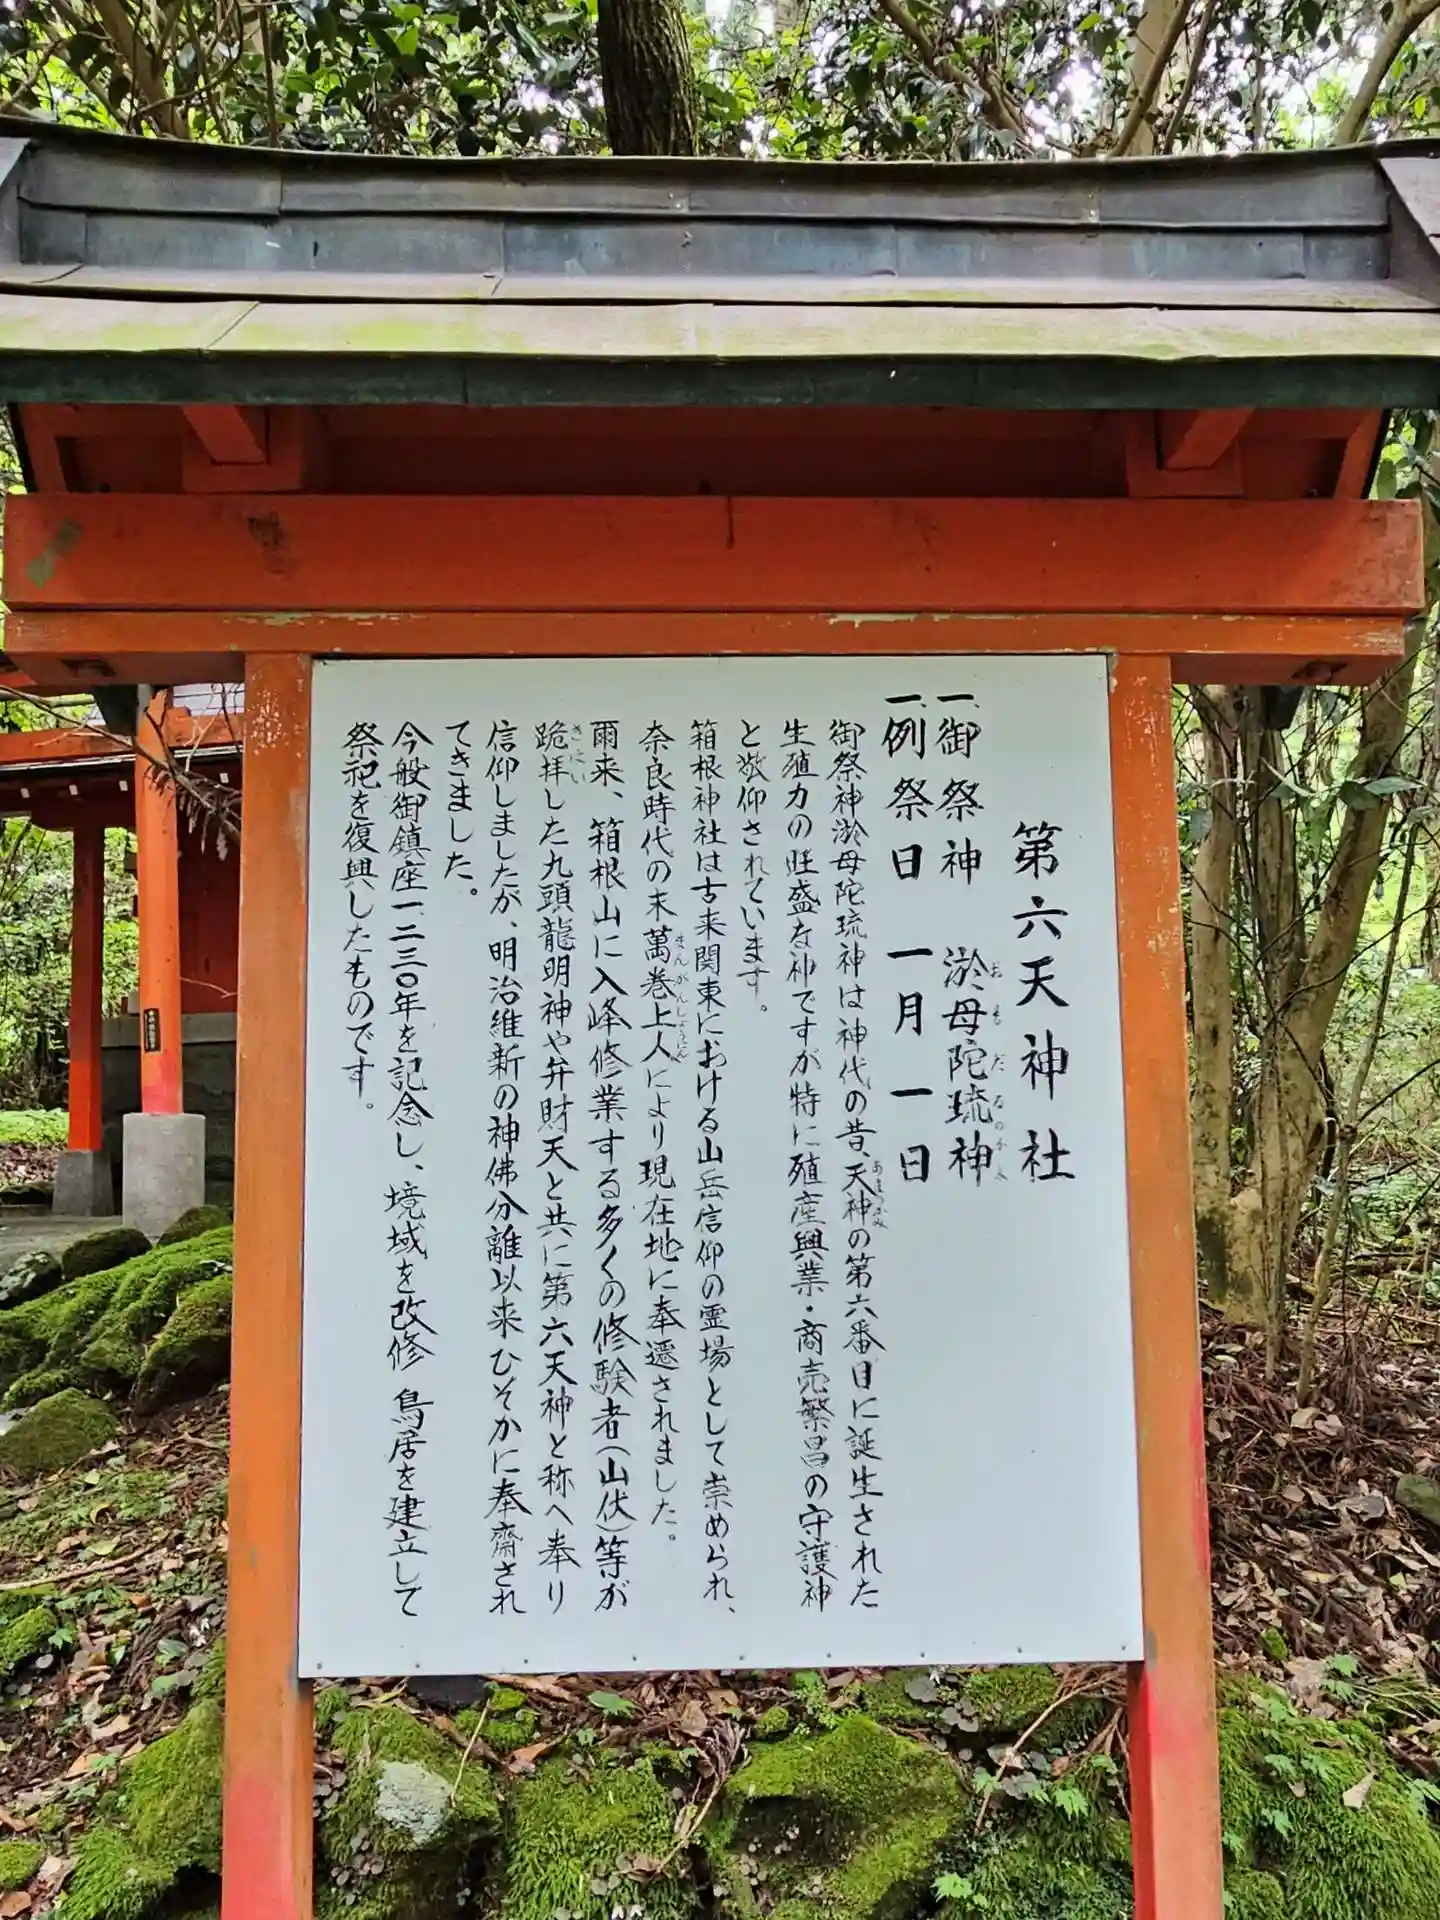 第六天神社
一、御祭神 淤母陀琉神
おもだるのかみ
一、例祭日 一月一日
御祭神淤母陀琉神は神代の昔、天神の第六番目に誕生された
あまつかみ
生殖力の旺盛な神ですが特に殖産興業・商売繁昌の守護神
と敬仰されています。
箱根神社は古来関東における山岳信仰の霊場として崇められ、
奈良時代の末萬巻上人により現在地に奉遷されました。
まんがんしょうにん
爾来、箱根山に入峰修業する多くの修験者(山伏)等が
跪拝した九頭龍明神や弁財天と共に第六天神と称へ奉り
きはい
信仰しましたが、明治維新の神佛分離以来ひそかに奉齋され
てきました。
今般御鎮座一、二三〇年を記念し、境域を改修 鳥居を建立して
祭祀を復興したものです。